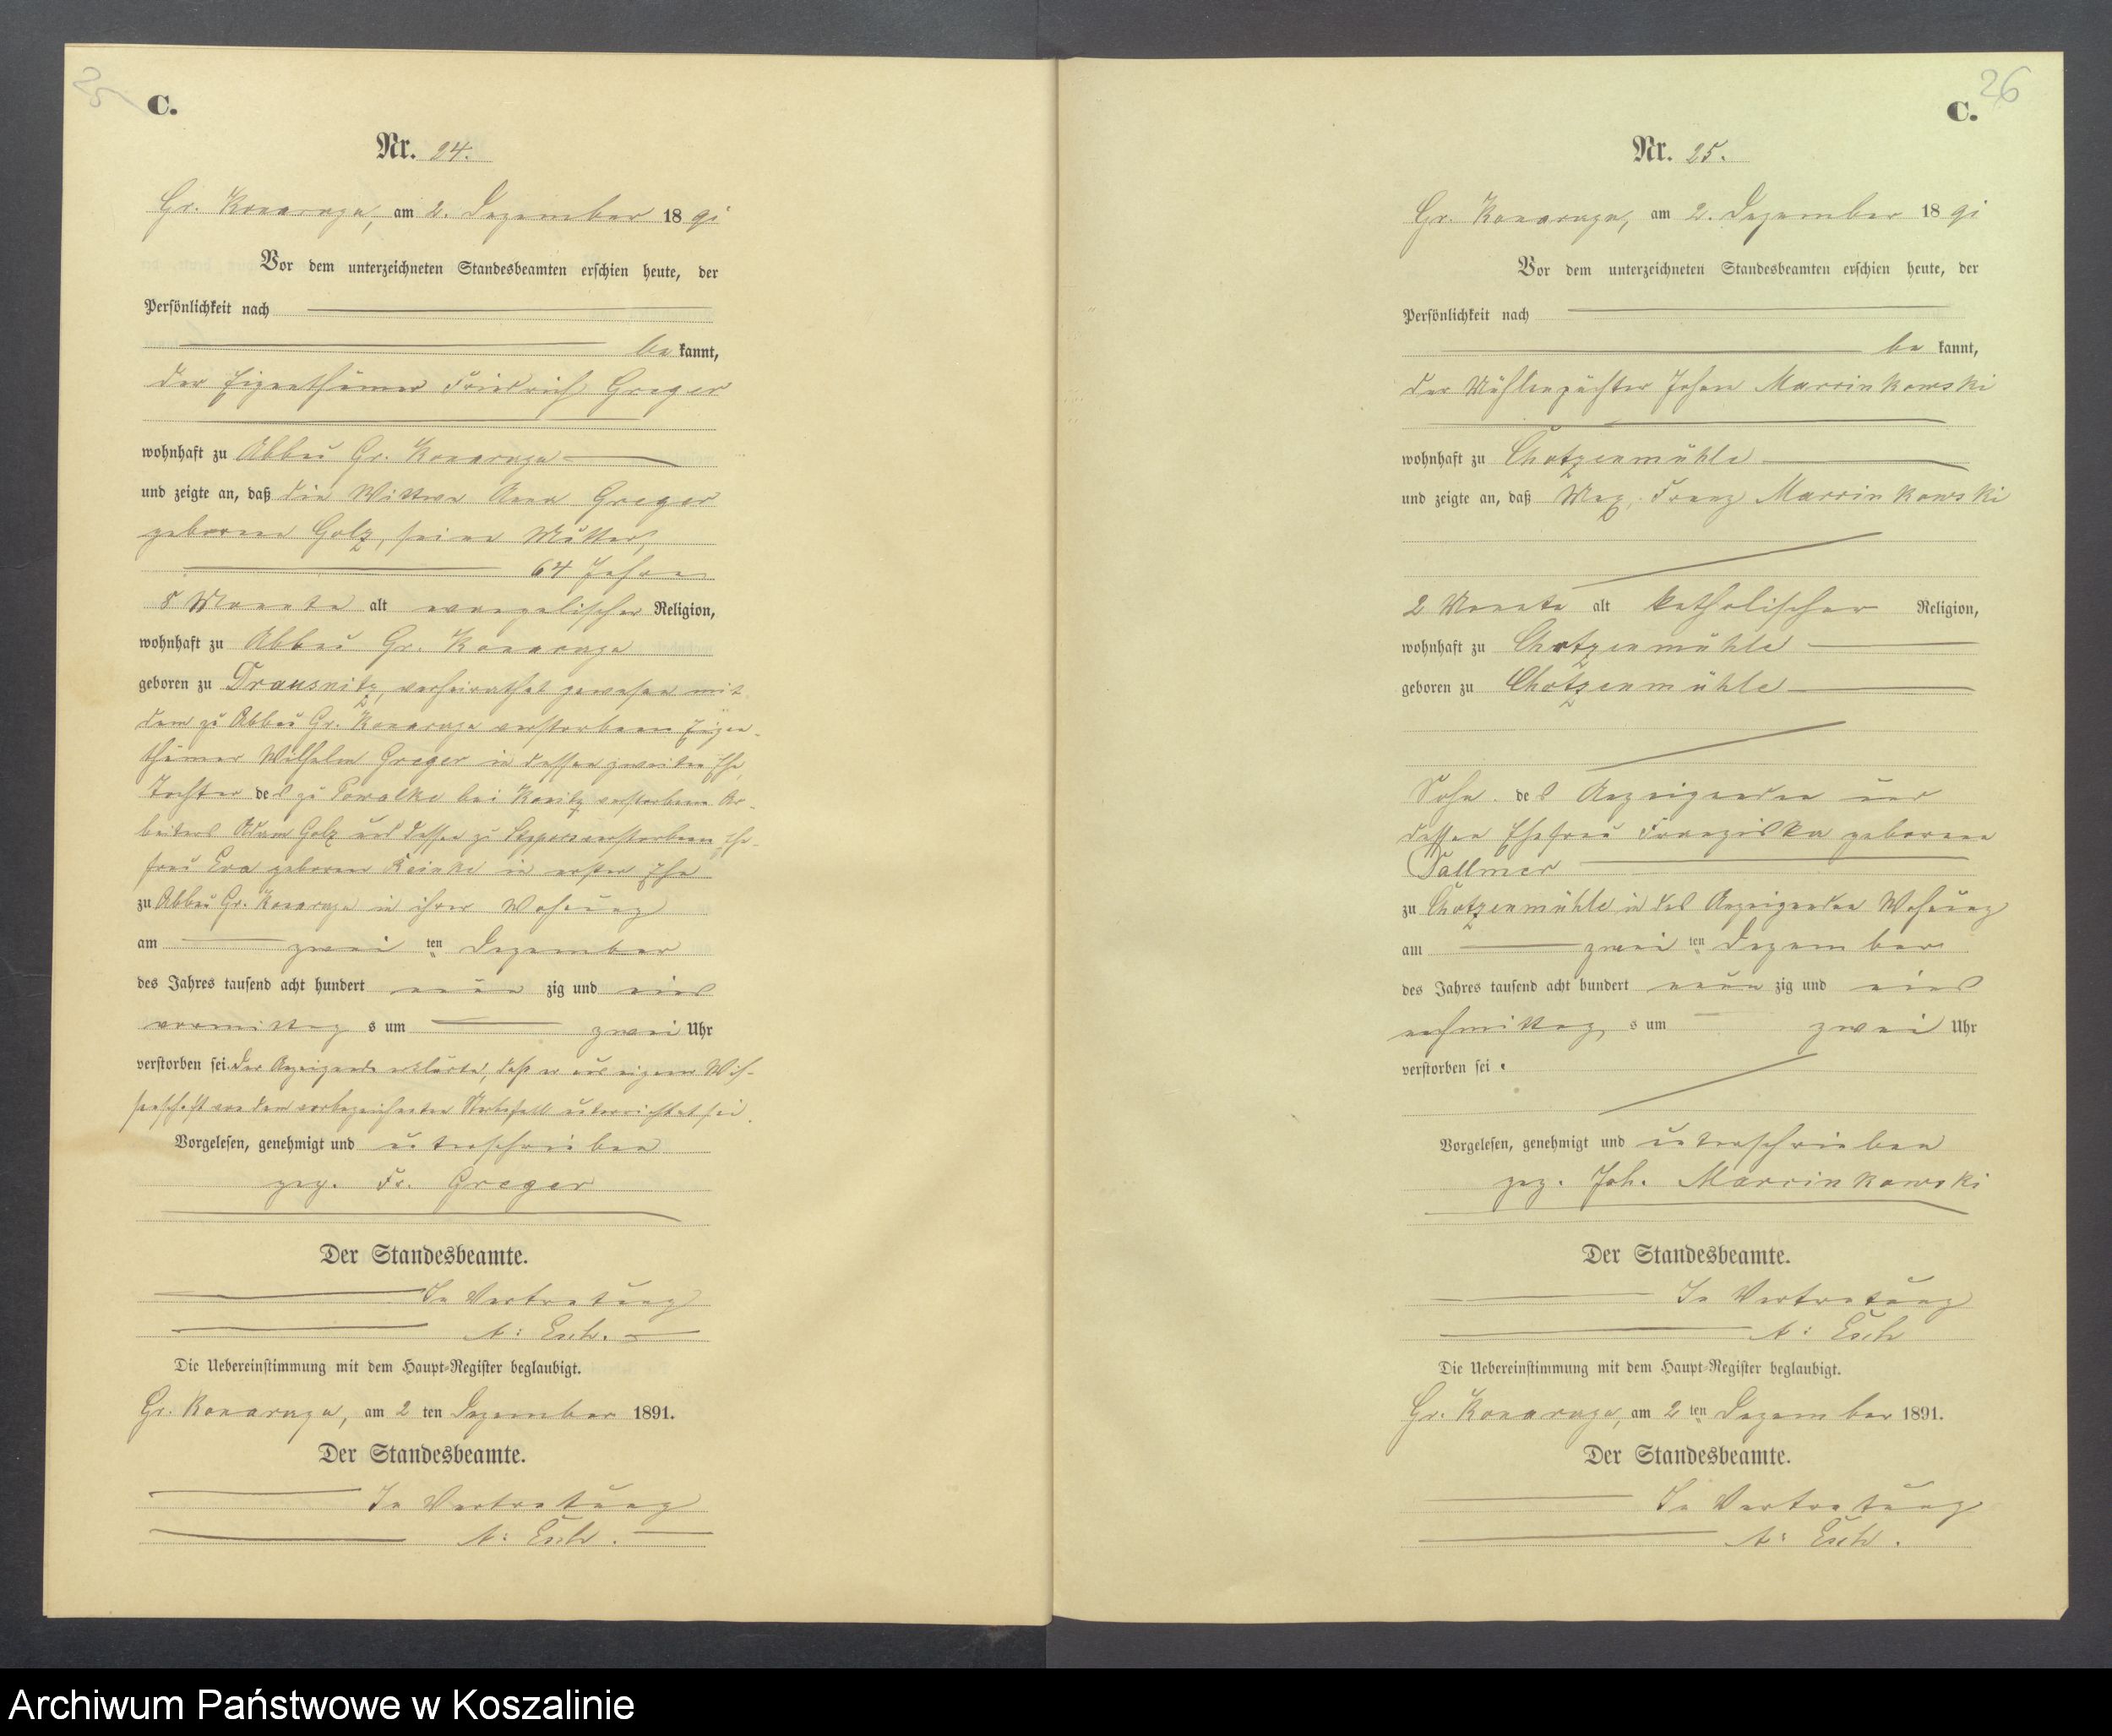 25
C.
Nr. 24.
Gr. Konarzyn, am 2. Dezember 1891
Vor dem unterzeichneten Standesbeamten erschien heute, der
Persönlichkeit nach
bekannt,
der Eigenthümer Friedrich Greger
wohnhaft zu Abbau Gr. Konarzyn
und zeigte an, daß die Wittwe Anna Greger
geborene Golz, seine Mutter,
64 Jahre
8 Monate alt evangelischer Religion,
wohnhaft zu Abbau Gr. Konarzyn
geboren zu Drausnitz, verheirathet gewesen mit
dem zu Abbau Gr. Konarzyn verstorbenen Eigen-
thümer Wilhelm Greger in dessen zweiter Ehe,
Tochter des zu Powalke bei Konitz verstorbenen Ar-
beiters Adam Golz und dessen zu verstorbenen Ehe-
frau Eva geborenen Reinke in erster Ehe
zu Abbau Gr. Konarzyn in ihrer Wohnung
am zweiten Dezember
des Jahres tausend acht hundert neunzig und eins
vormittags um zwei Uhr
verstorben sei. Der Anzeigende erklärte, daß er aus eigener Wis-
senschaft von dem vorbezeichneten Sterbefall unterrichtet sei.
Vorgelesen, genehmigt und unterschrieben
gez. Fr. Greger
Der Standesbeamte.
In Vertretung
A: Esch.
Die Uebereinstimmung mit dem Haupt-Register beglaubigt.
Gr. Konarzyn, am 2 ten Dezember 1891.
Der Standesbeamte.
In Vertretung
A: Esch.
26
C.
Nr. 25.
Gr. Konarzyn, am 2. Dezember 1891
Vor dem unterzeichneten Standesbeamten erschien heute, der
Persönlichkeit nach
bekannt,
der Mühlenpächter Johann Marcinkowski
wohnhaft zu Chotzenmühle
und zeigte an, daß Max, Franz Marcinkowski
2 Monate alt katholischer Religion,
wohnhaft zu Chotzenmühle
geboren zu Chotzenmühle
Sohn des Anzeigenden und
dessen Ehefrau Franziska geborene
Sallmer
zu Chotzenmühle in des Anzeigenden Wohnung
am zweiten Dezember
des Jahres tausend acht hundert neunzig und eins
nachmittags um zwei Uhr
verstorben sei.
Vorgelesen, genehmigt und unterschrieben
gez. Joh. Marcinkowski
Der Standesbeamte.
In Vertretung
A: Esch
Die Uebereinstimmung mit dem Haupt-Register beglaubigt.
Gr. Konarzyn, am 2 ten Dezember 1891.
Der Standesbeamte.
In Vertretung
A: Esch.
Archiwum Państwowe w Koszalinie